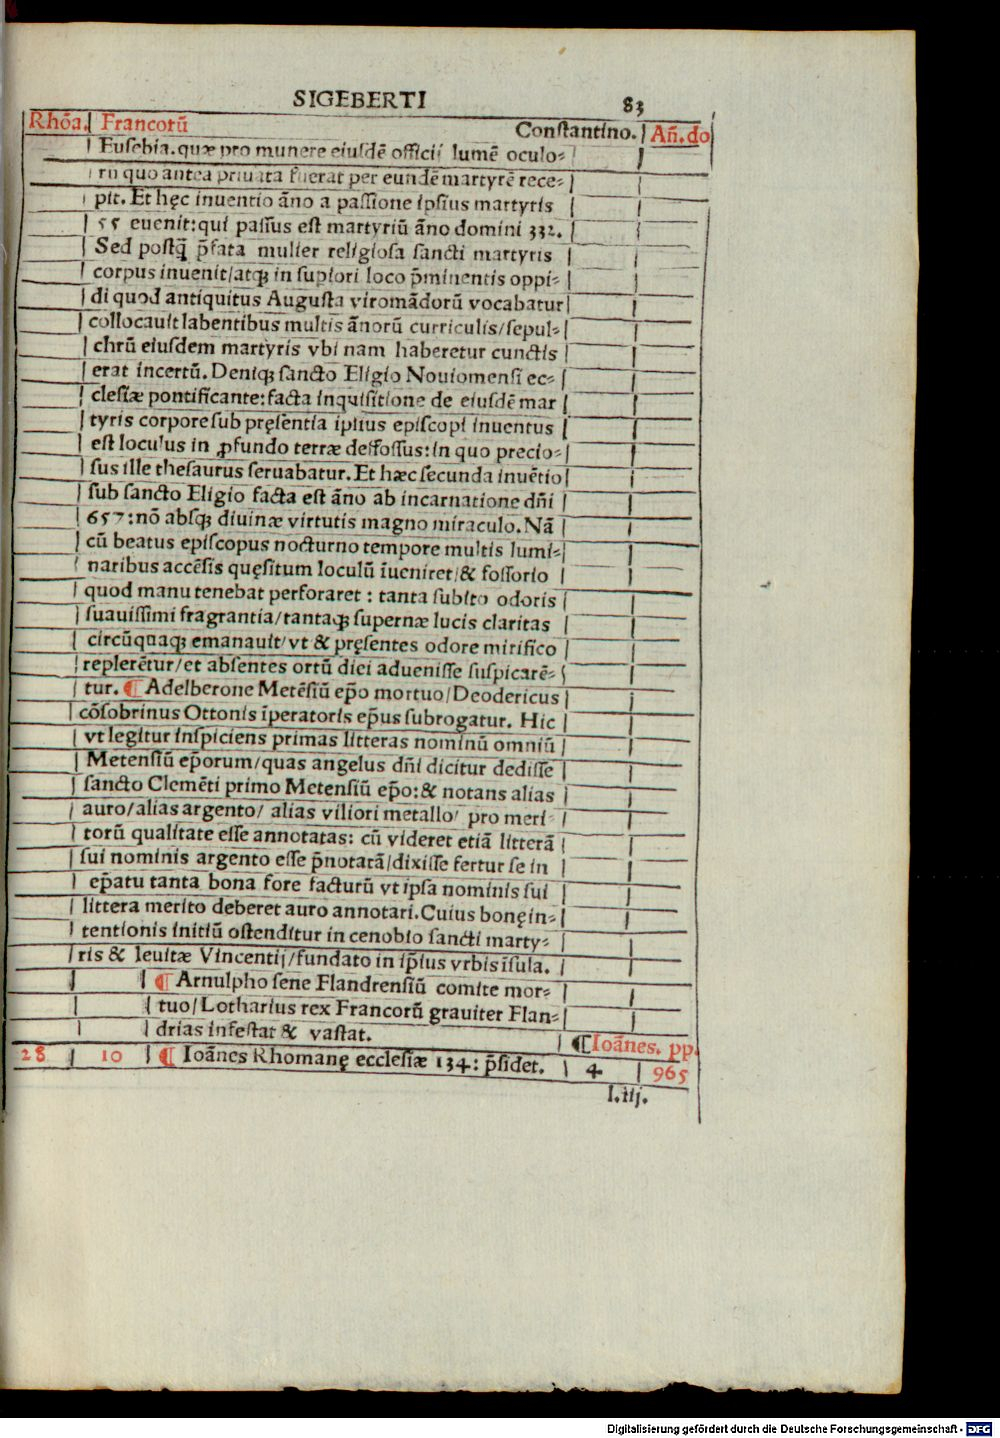 SIGEBERTI 83
Rhōa. Francorū Constantino. Añ.do
Eusebia. quæ pro munere eiusdē officij lumē oculo⸗
rū quo antea priuata fuerat per eundē martyrē rece⸗
pit. Et hęc inuentio āno a passione ipsius martyris
55 euenit: qui passus est martyriū āno domini 332.
Sed postq̄ p̄fata mulier religiosa sancti martyris
corpus inuenit/atqꝫ in supiori loco p̄minentis oppi⸗
di quod antiquitus Augusta viromādorū vocabatur
collocauit labentibus multis ānorū curriculis/sepul⸗
chrū eiusdem martyris vbi nam haberetur cunctis
erat incertū. Deniqꝫ sancto Eligio Nouiomensi ec⸗
clesiæ pontificante: facta inquisitione de eiusdē mar
tyris corpore sub pręsentia ipsius episcopi inuentus
est loculus in ꝓfundo terræ deffossus: in quo precio⸗
sus ille thesaurus seruabatur. Et hæc secunda inuētio
sub sancto Eligio facta est āno ab incarnatione dñi
657: nō absqꝫ diuinæ virtutis magno miraculo. Nā
cū beatus episcopus nocturno tempore multis lumi⸗
naribus accēsis quęsitum loculū īueniret/& fossorio
quod manu tenebat perforaret : tanta subito odoris
suauissimi fragrantia/tantaqꝫ supernæ lucis claritas
circūquaqꝫ emanauit/vt & pręsentes odore mirifico
replerētur/et absentes ortū diei aduenisse suspicarē⸗
tur. ¶ Adelberone Metēsiū ep̄o mortuo/Deodericus
cōsobrinus Ottonis īperatoris ep̄us subrogatur. Hic
vt legitur inspiciens primas litteras nominū omniū
Metensiū ep̄orum/quas angelus dñi dicitur dedisse
sancto Clemēti primo Metensiū ep̄o: & notans alias
auro/alias argento/ alias viliori metallo/ pro meri⸗
torū qualitate esse annotatas: cū videret etiā litterā
sui nominis argento esse p̄notatā/dixisse fertur se in
ep̄atu tanta bona fore facturū vt ipsa nominis sui
littera merito deberet auro annotari. Cuius bonę in⸗
tentionis initiū ostenditur in cenobio sancti marty⸗
ris & leuitæ Vincentij/fundato in ip̄ius vrbis īsula.
¶ Arnulpho sene Flandrensiū comite mor⸗
tuo/Lotharius rex Francorū grauiter Flan⸗
drias infestat & vastat.
¶Ioānes. pp.
28 10 ¶ Ioānes Rhomanę ecclesiæ 134: p̄sidet. 4 965
l.iij.
Digitalisierung gefördert durch die Deutsche Forschungsgemeinschaft - DFG